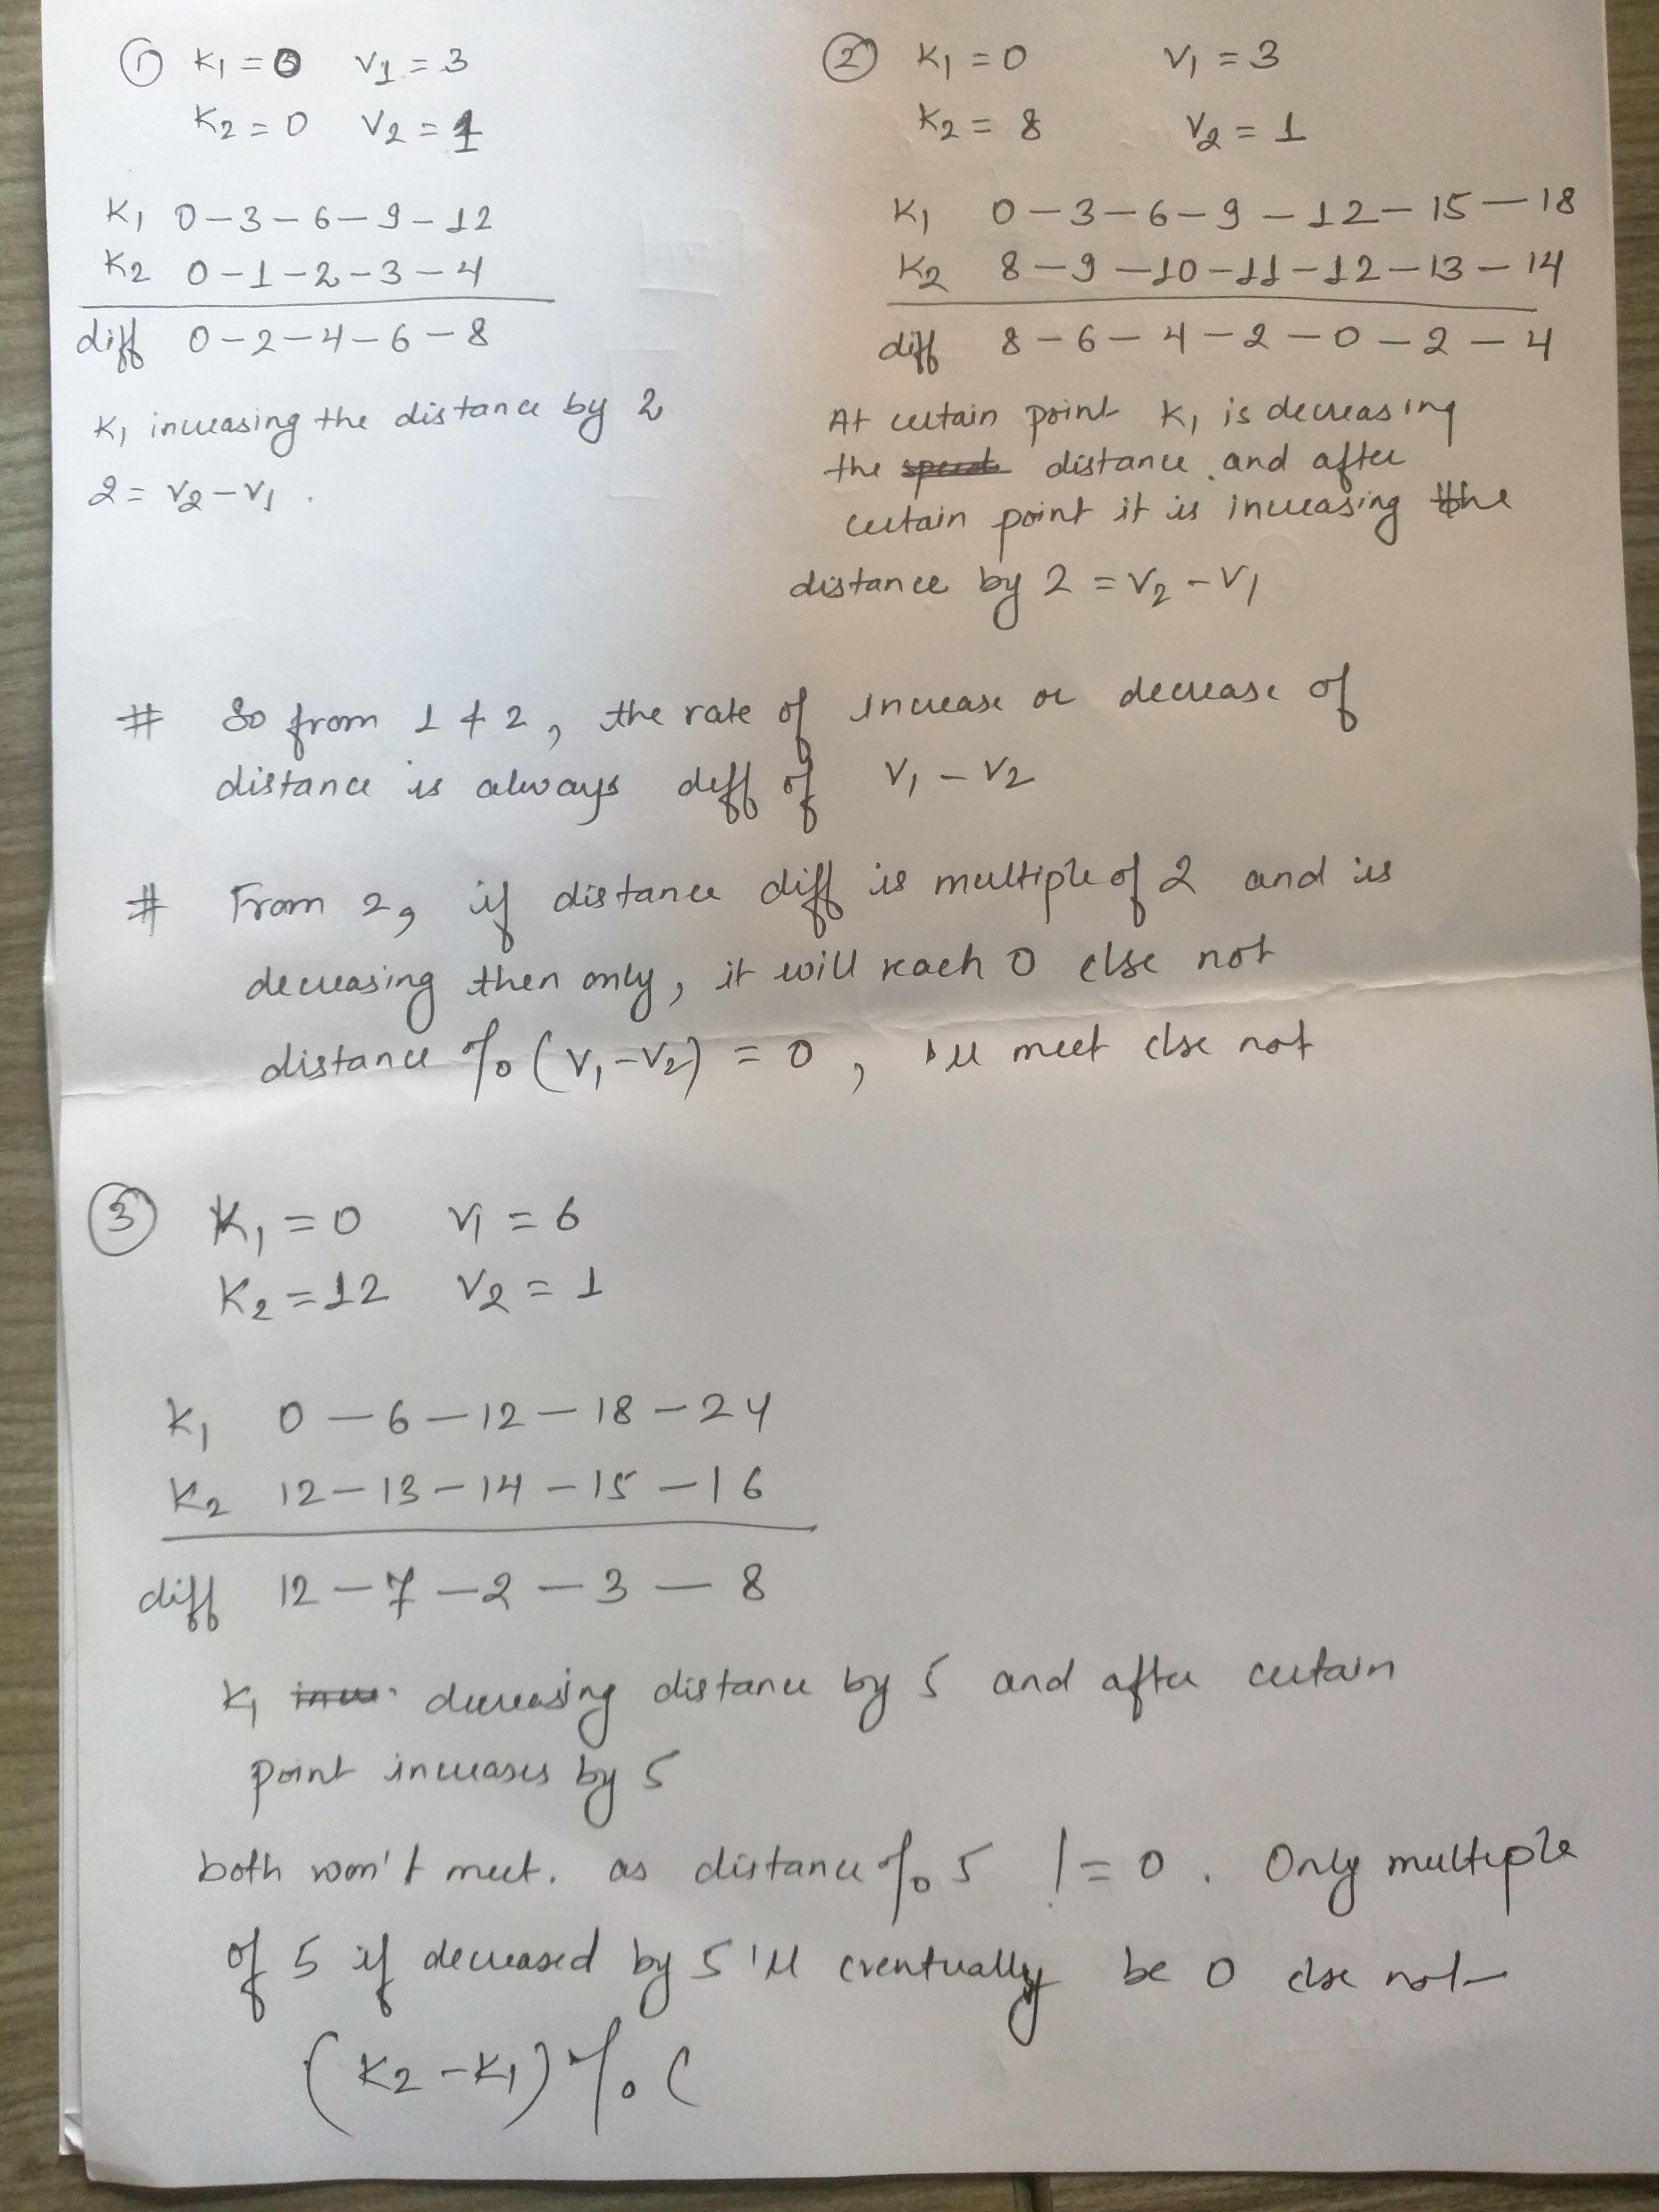 ① K1 = 0 V1 = 3
K2 = 0 V2 = 1
K1 0 – 3 – 6 – 9 – 12
K2 0 – 1 – 2 – 3 – 4
diff 0 – 2 – 4 – 6 – 8
K1 increasing the distance by 2
2 = V2 – V1 .
② K1 = 0 V1 = 3
K2 = 8 V2 = 1
K1 0 – 3 – 6 – 9 – 12 – 15 – 18
K2 8 – 9 – 10 – 11 – 12 – 13 – 14
diff 8 – 6 – 4 – 2 – 0 – 2 – 4
At certain point K1 is decreasing
the speed distance and after
certain point it is increasing the
distance by 2 = V2 – V1
# So from 1 & 2, the rate of increase or decrease of
distance is always diff of V1 – V2
# From 2, if distance diff is multiple of 2 and is
decreasing then only, it will reach 0 else not
distance % (V1 – V2) = 0 , 'll meet else not
③ K1 = 0 V1 = 6
K2 = 12 V2 = 1
K1 0 – 6 – 12 – 18 – 24
K2 12 – 13 – 14 – 15 – 16
diff 12 – 7 – 2 – 3 – 8
K1 decreasing distance by 5 and after certain
point increases by 5
both won't meet. as distance % 5 != 0 . Only multiple
of 5 if decreased by 5 'll eventually be 0 else not
(K2 – K1) % (